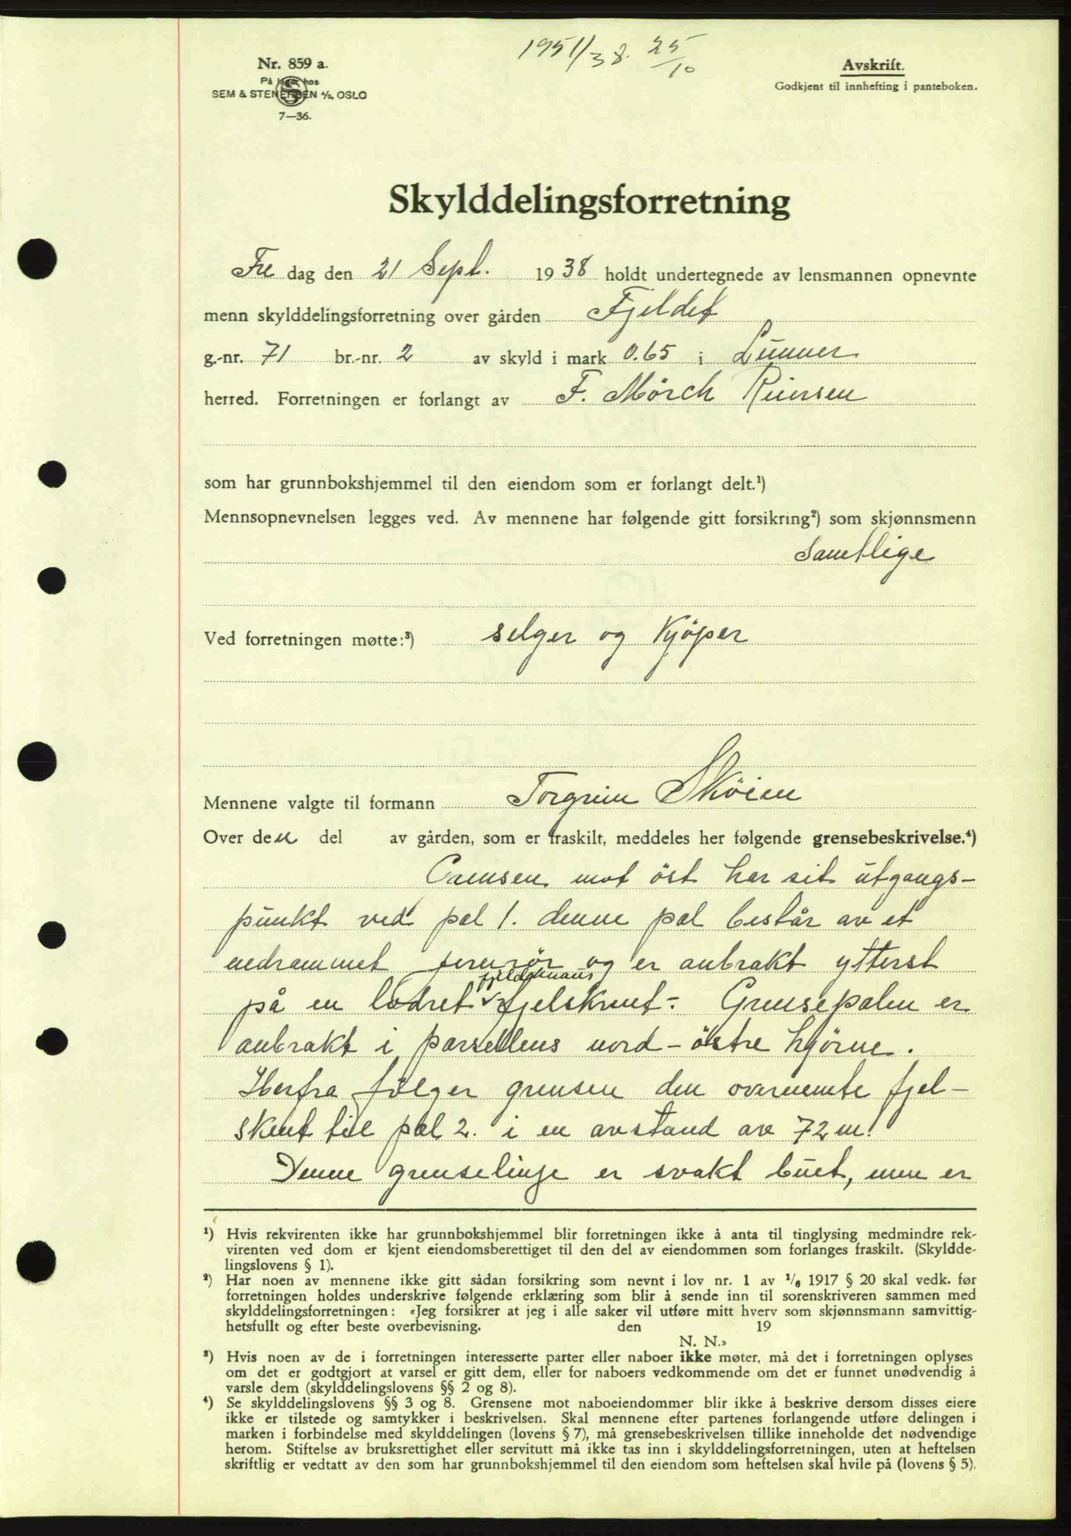 1951/38. 25/10
Nr. 859 a.
På lager hos
SEM & STENERSEN A/S, OSLO
7—36.
Avskrift.
Godkjent til innhefting i panteboken.
Skylddelingsforretning
Fre dag den 21 Sept. 1938 holdt undertegnede av lensmannen opnevnte
menn skylddelingsforretning over gården Fjeldet
g.-nr. 71 br.-nr. 2 av skyld i mark 0.65 i Lunner
herred. Forretningen er forlangt av F. Mörch
som har grunnbokshjemmel til den eiendom som er forlangt delt.¹)
Mennsopnevnelsen legges ved. Av mennene har følgende gitt forsikring²) som skjønnsmenn
samtlige
Ved forretningen møtte:³) selger og Kjöper
Mennene valgte til formann Torgrim Sköien
Over den del av gården, som er fraskilt, meddeles her følgende grensebeskrivelse.⁴)
Grensen mot öst har sit utgangs-
punkt ved pel 1. denne pel består av et
nedrammet jernrör og er anbrakt ytterst
på en lodret fjeldknaus fjelskrent. Grensepelen er
anbrakt i parsellens nord-östre hjörne.
Herfra fölger grensen den overnevnte fjel-
skrent til pel 2. i en avstand av 72 m.
Denne grenselinje er svakt buet, men er
¹) Hvis rekvirenten ikke har grunnbokshjemmel blir forretningen ikke å anta til tinglysing medmindre rek-
virenten ved dom er kjent eiendomsberettiget til den del av eiendommen som forlanges fraskilt. (Skyldde-
lingslovens § 1).
²) Har noen av mennene ikke gitt sådan forsikring som nevnt i lov nr. 1 av 1/6 1917 § 20 skal vedk. før
forretningen holdes underskrive følgende erklæring som blir å sende inn til sorenskriveren sammen med
skylddelingsforretningen: «Jeg forsikrer at jeg i alle saker vil utføre mitt hverv som skjønnsmann samvittig-
hetsfullt og efter beste overbevisning. den 19
N. N.»
³) Hvis noen av de i forretningen interesserte parter eller naboer ikke møter, må det i forretningen oplyses
om det er godtgjort at varsel er gitt dem, eller for naboers vedkommende om det er funnet unødvendig å
varsle dem (skylddelingslovens §§ 2 og 8).
⁴) Se skylddelingslovens §§ 3 og 8. Grensene mot naboeiendommer blir ikke å beskrive dersom disses eiere
ikke er tilstede og samtykker i beskrivelsen. Skal mennene efter partenes forlangende utføre delingen i
marken i forbindelse med skylddelingen (lovens § 7), må grensebeskrivelsen tillike inneholde det nødvendige
herom. Stiftelse av bruksrettighet eller servitutt må ikke tas inn i skylddelingsforretningen, uten at heftelsen
skriftlig er vedtatt av den som har grunnbokshjemmel til den eiendom som heftelsen skal hvile på (lovens § 5).